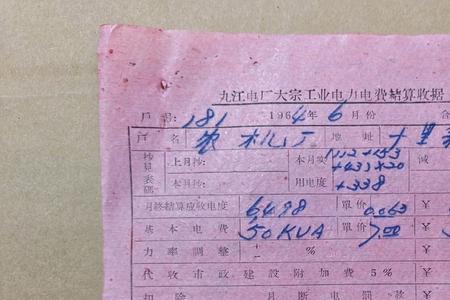 九江电厂大宗工业电力电费结算收据
户号: 181 1964年6月份
户名 农机厂 地址 十里
抄见表码 上月抄: 本月实 +433×20 减
本月抄: 用电度 +338
月终结算应收电度 6498 單价 0.063 ¥
基本电费 50KVA 單价 7.00 ¥
力率調整 + − % ¥
代收市政建設附加費 5% ¥
扣除 月 断电罰款